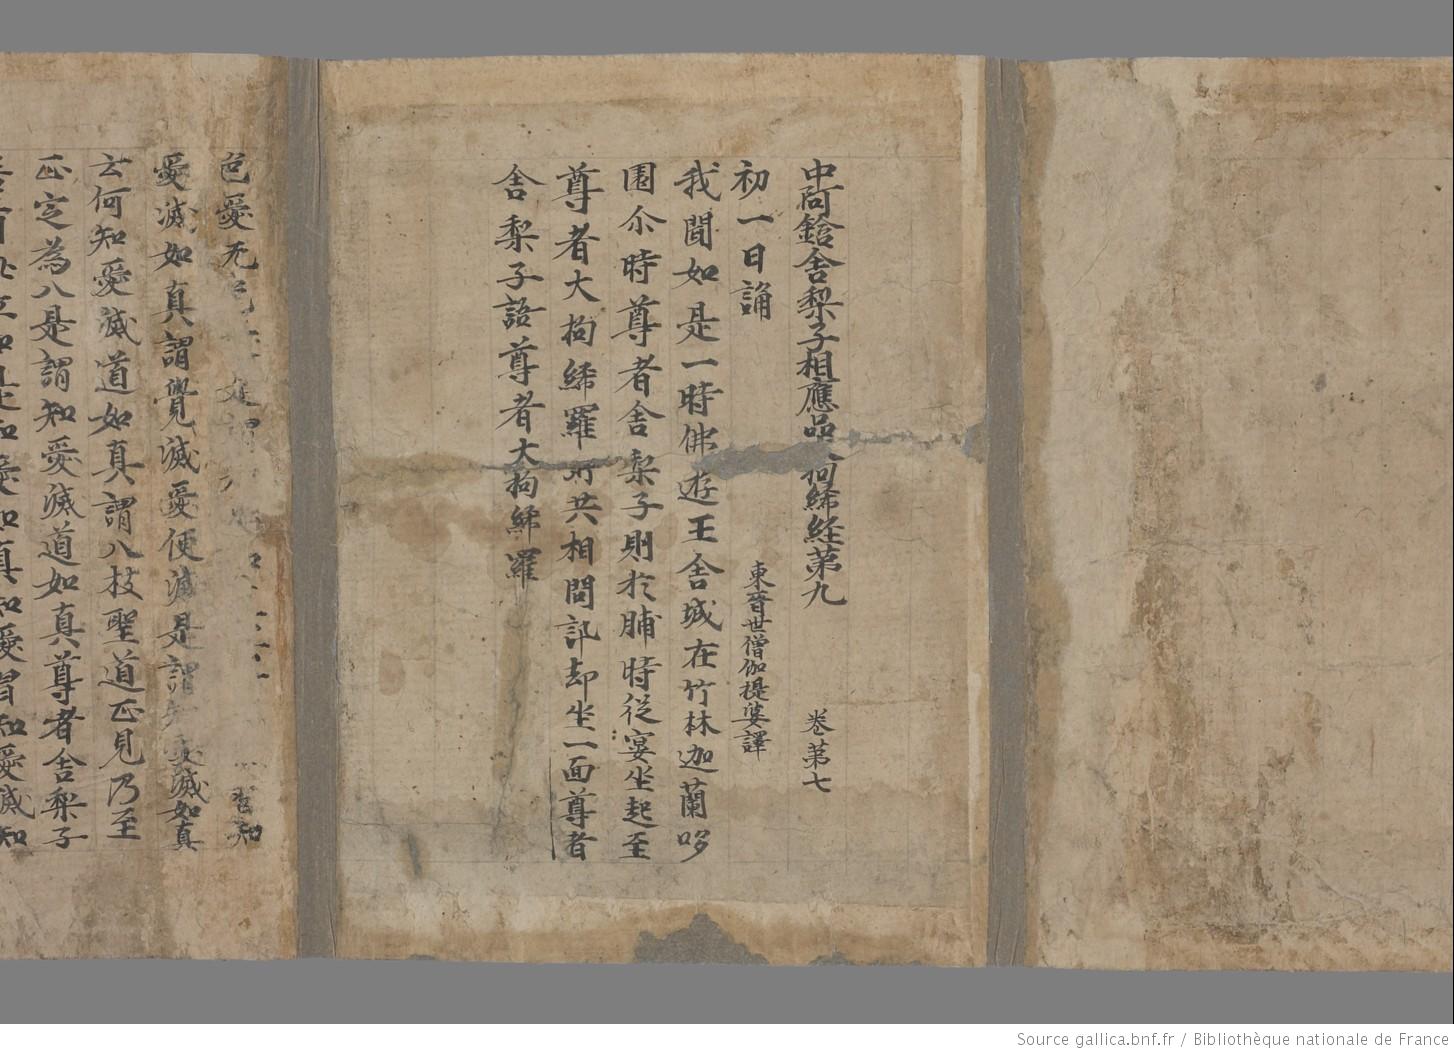 中阿鋡舍梨子相應品 拘絺經第九 卷苐七
初一日誦 東晉世僧伽提婆譯
我聞如是一時佛遊王舍城在竹林迦蘭哆
園尒時尊者舍梨子則於晡時從宴坐起至
尊者大拘絺羅所共相問訊却坐一面尊者
舍梨子語尊者大拘絺羅
色愛无色
愛滅如真謂覺滅愛便滅是謂知愛滅如真
云何知愛滅道如真謂八枝聖道正見乃至
正定為八是謂知愛滅道如真尊者舍梨子
若有 如是知愛如真知愛習知愛滅知
Source gallica.bnf.fr / Bibliothèque nationale de France